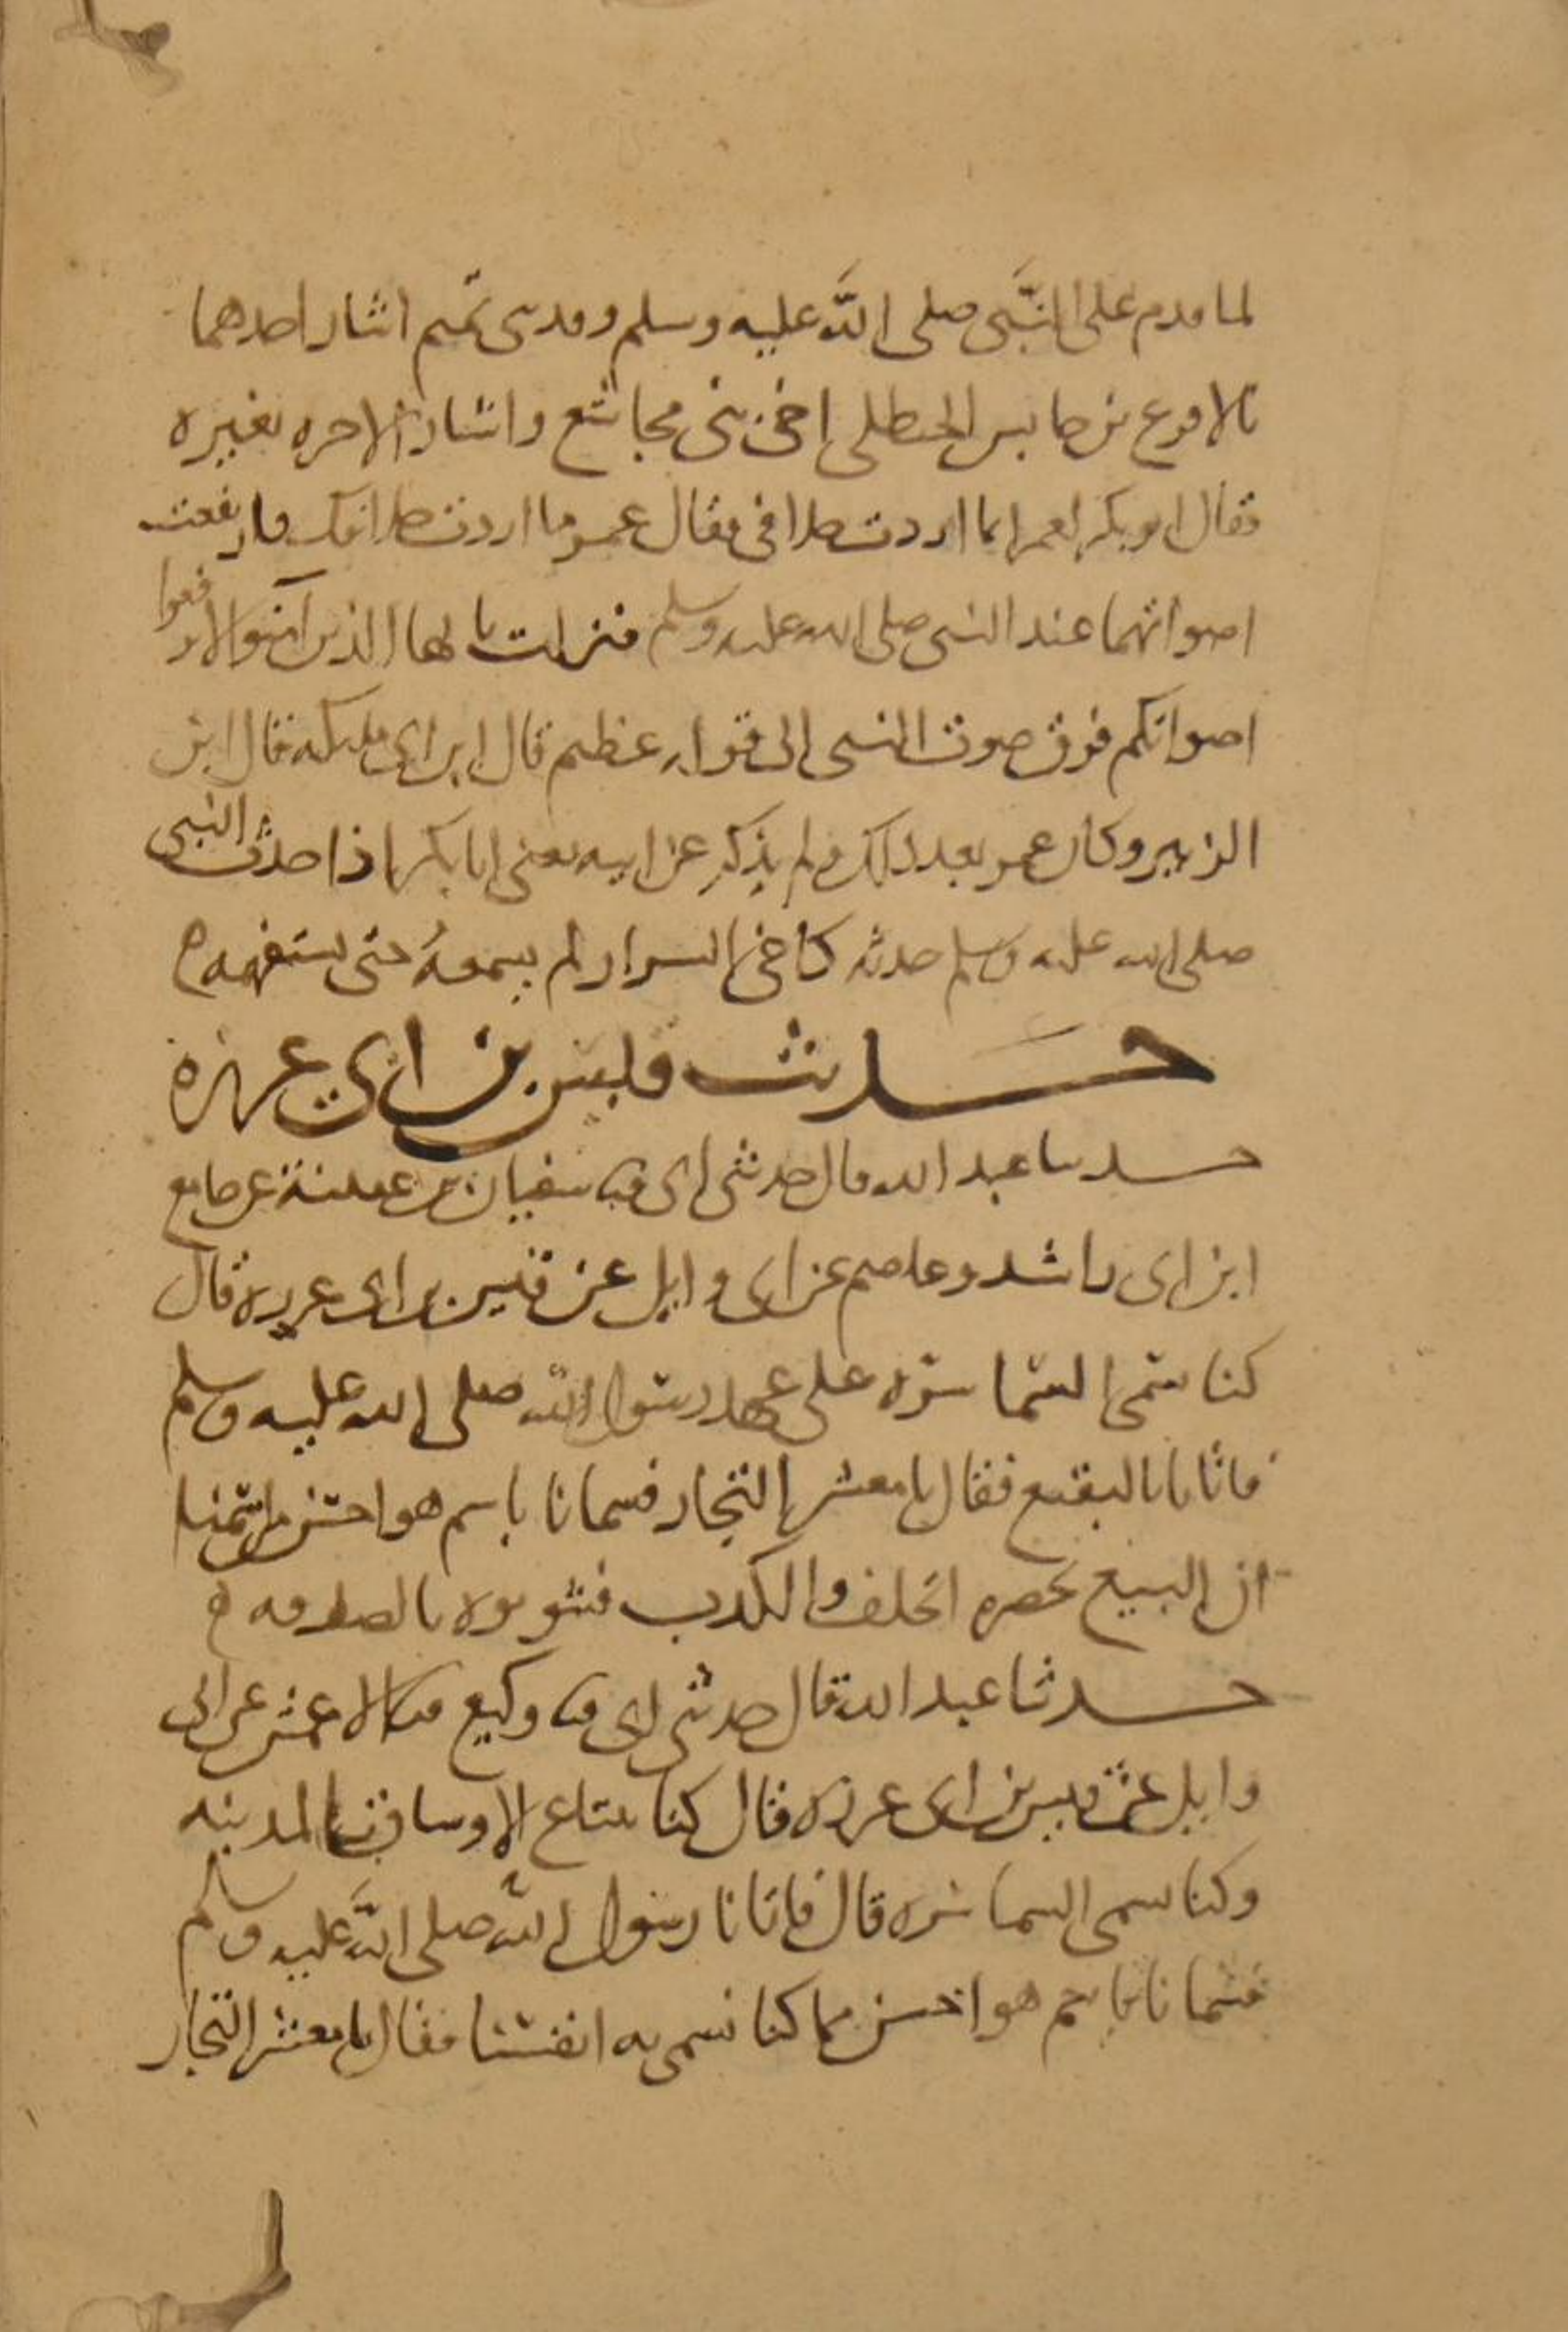 لما قدم على النبي صلى الله عليه وسلم وفد بني تميم اشار احدهما
بالاقرع بن حابس الحنظلي اخي بني مجاشع واشار الاخر بغيره
فقال ابو بكر لعمر انما اردت خلافي فقال عمر ما اردت خلافك فارتفعت
اصواتهما عند النبي صلى الله عليه وسلم فنزلت يا ايها الذين آمنوا لا ترفعوا
اصواتكم فوق صوت النبي الى قوله عظيم قال ابن ابي مليكه قال ابن
الزبير وكان عمر بعد ذلك ولم يذكر عن ابيه يعني ابا بكر اذا حدث النبي
صلى الله عليه وسلم حدثه كاخي السرار لم يسمعه حتى يستفهمه ه
حديث قيس بن ابي غرزه
حدثنا عبد الله قال حدثني ابي قثنا سفيان بن عيينة عن جامع
ابن ابي راشد وعاصم عن ابي وايل عن قيس بن ابي غرزه قال
كنا نسمى السماسره على عهد رسول الله صلى الله عليه وسلم
فاتانا بالبقيع فقال يا معشر التجار فسمانا باسم هو احسن من اسمنا
ان البيع يحضره الحلف والكذب فشوبوه بالصدقه ه
حدثنا عبد الله قال حدثني ابي قثنا وكيع قثنا الاعمش عن ابي
وايل عن قيس بن ابي غرزه قال كنا نبتاع الاوساق بالمدينه
وكنا نسمى السماسره قال فاتانا رسول الله صلى الله عليه وسلم
فسمانا باسم هو احسن مما كنا نسمي به انفسنا فقال يا معشر التجار